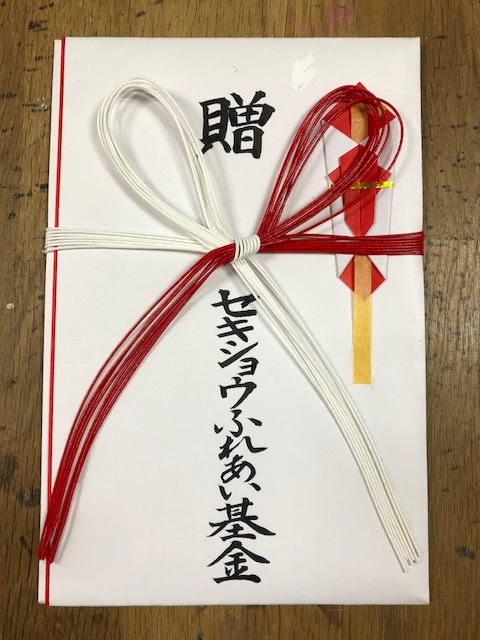 贈
セキショウふれあい基金